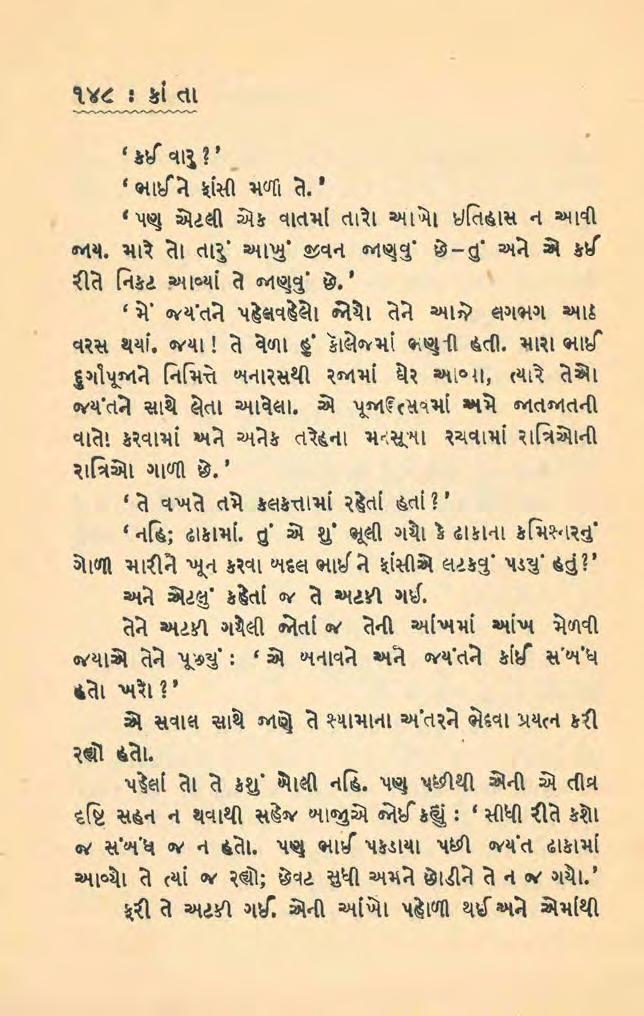 ૧૪૮ : કાં તા
‘કઈ વારુ ?’
‘ભાઈને ફાંસી મળી તે.’
‘પણ એટલી એક વાતમાં તારો આખો ઇતિહાસ ન આવી
જાય. મારે તો તારું આખું જીવન જાણવું છે–તું અને એ કઈ
રીતે નિકટ આવ્યાં તે જાણવું છે.’
‘મેં જયંતને પહેલવહેલો જોયો તેને આજે લગભગ આઠ
વરસ થયાં. જયા! તે વેળા હું કૉલેજમાં ભણતી હતી. મારા ભાઈ
દુર્ગાપૂજાને નિમિત્તે બનારસથી રજામાં ઘેર આવ્યા, ત્યારે તેઓ
જયંતને સાથે લેતા આવેલા. એ પૂજાઉત્સવમાં અમે જાતજાતની
વાતો કરવામાં અને અનેક તરેહના મનસૂબા રચવામાં રાત્રિઓની
રાત્રિઓ ગાળી છે.’
‘તે વખતે તમે કલકત્તામાં રહેતાં હતાં?’
‘નહિ; ઢાકામાં. તું એ શું ભૂલી ગયો કે ઢાકાના કમિશ્નરનું
ગોળી મારીને ખૂન કરવા બદલ ભાઈને ફાંસીએ લટકવું પડયું હતું?’
અને એટલું કહેતાં જ તે અટકી ગઈ.
તેને અટકી ગયેલી જોતાં જ તેની આંખમાં આંખ મેળવી
જયાએ તેને પૂછ્યું : ‘એ બનાવને અને જયંતને કાંઈ સંબંધ
હતો ખરો ?’
એ સવાલ સાથે જાણે તે શ્યામાના અંતરને ભેદવા પ્રયત્ન કરી
રહ્યો હતો.
પહેલાં તો તે કશું બોલી નહિ. પણ પછીથી એની એ તીવ્ર
દૃષ્ટિ સહન ન થવાથી સહેજ બાજુએ જોઈ કહ્યું : ‘સીધી રીતે કશો
જ સંબંધ જ ન હતો. પણ ભાઈ પકડાયા પછી જયંત ઢાકામાં
આવ્યો તે ત્યાં જ રહ્યો; છેવટ સુધી અમને છોડીને તે ન જ ગયો.’
ફરી તે અટકી ગઈ. એની આંખો પહોળી થઈ અને એમાંથી